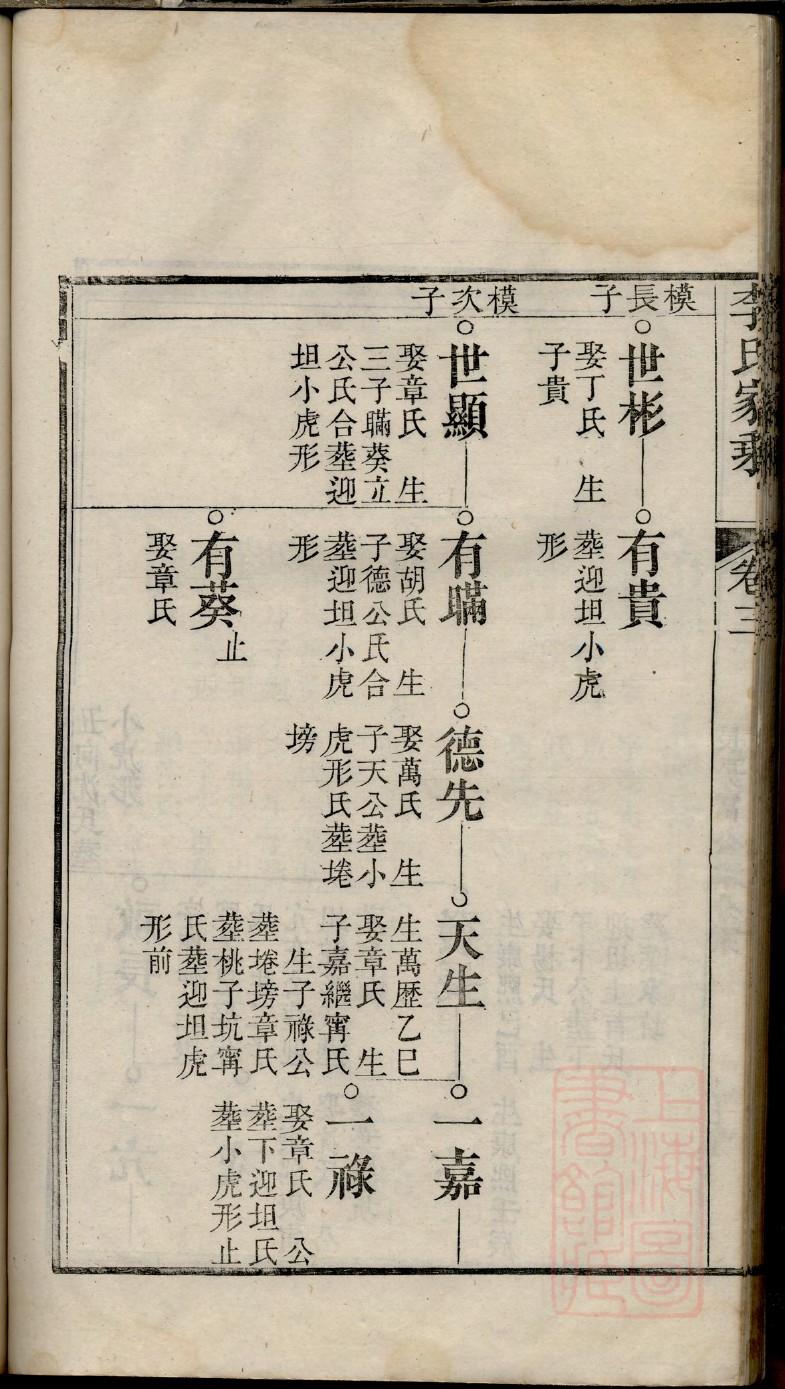 李氏家乘
卷三
模長子
世彬
娶丁氏　生
子貴
有貴
塟迎坦小虎
形
模次子
世顯
娶章氏　生
三子瞞葵立
公氏合塟迎
坦小虎形
有瞞
娶胡氏　生
子德公氏合
塟迎坦小虎
形
德先
娶萬氏　生
子天公塟小
虎形氏塟埢
塝
天生
生萬歷乙巳
娶章氏　生
子嘉繼甯氏
生子祿公
塟埢塝章氏
塟桃子坑甯
氏塟迎坦虎
形前
一嘉
一祿
娶章氏　公
塟下迎坦氏
塟小虎形止
有葵
止
娶章氏
上海圖書館藏